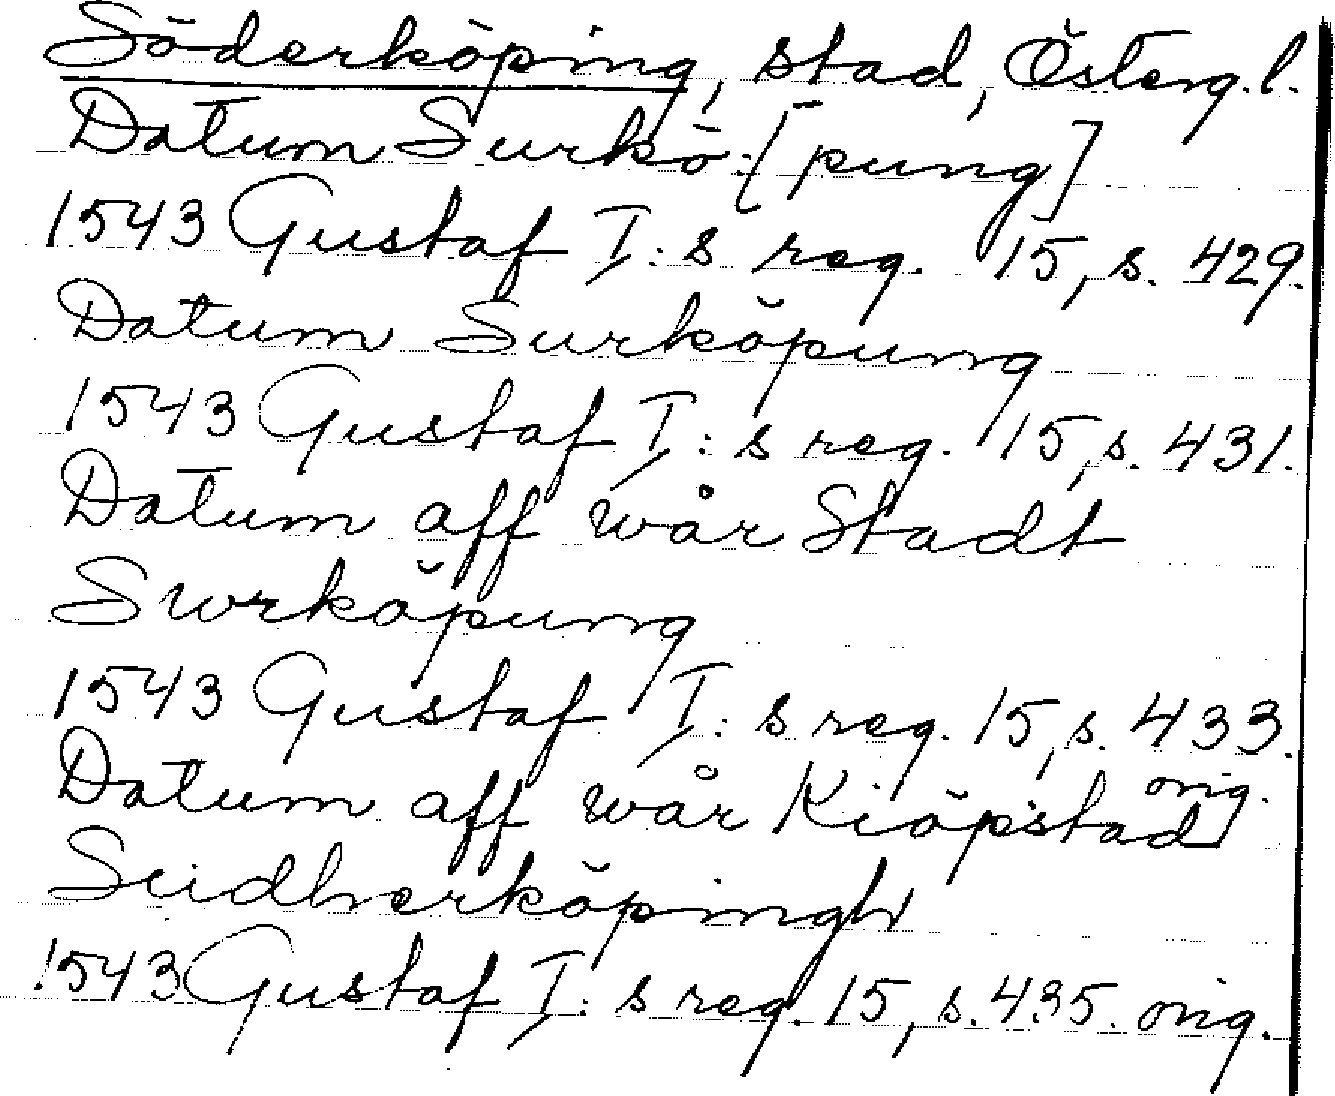 Söderköping, stad, Österg.l.
Datum Surkö[pung]
1543 Gustaf I:s reg. 15, s. 429.
Datum Surköpung
1543 Gustaf I:s reg. 15, s. 431.
Datum aff wår Stadt
Swrköpung
1543 Gustaf I:s reg. 15, s. 433.
orig.
Datum aff wår Kiöpstad
Sudherköpingh
1543 Gustaf I:s reg. 15, s. 435. orig.